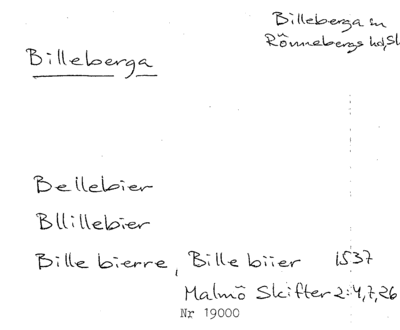 Billeberga sn
Rönnebergs hd, Sk
Billeberga
Bellebier
Bllillebier
Bille bierre, Bille biier 1537
Malmö Skifter 2:4,7,26
Nr 19000